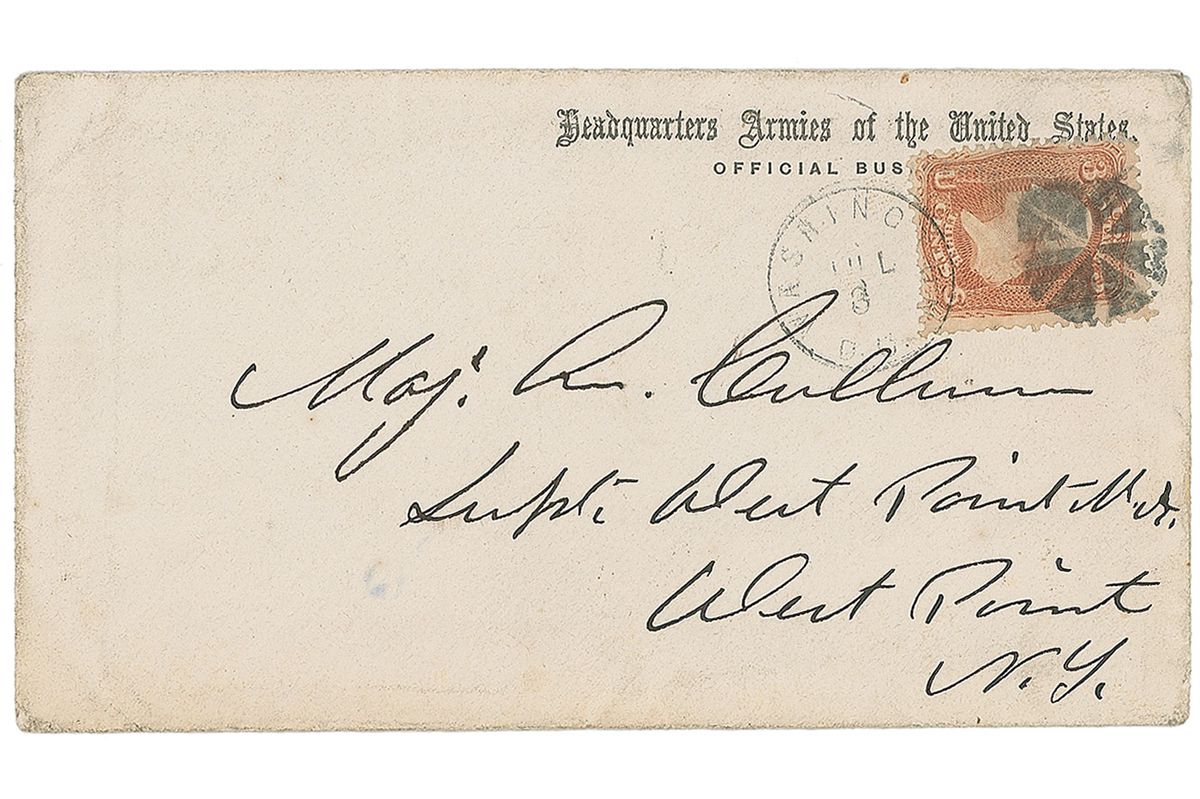 Headquarters Armies of the United States.
OFFICIAL BUS
WASHING
JUL
8
D.C.
U 3
Maj. R. Cullum
Supt. West Point M.A.
West Point
N.Y.